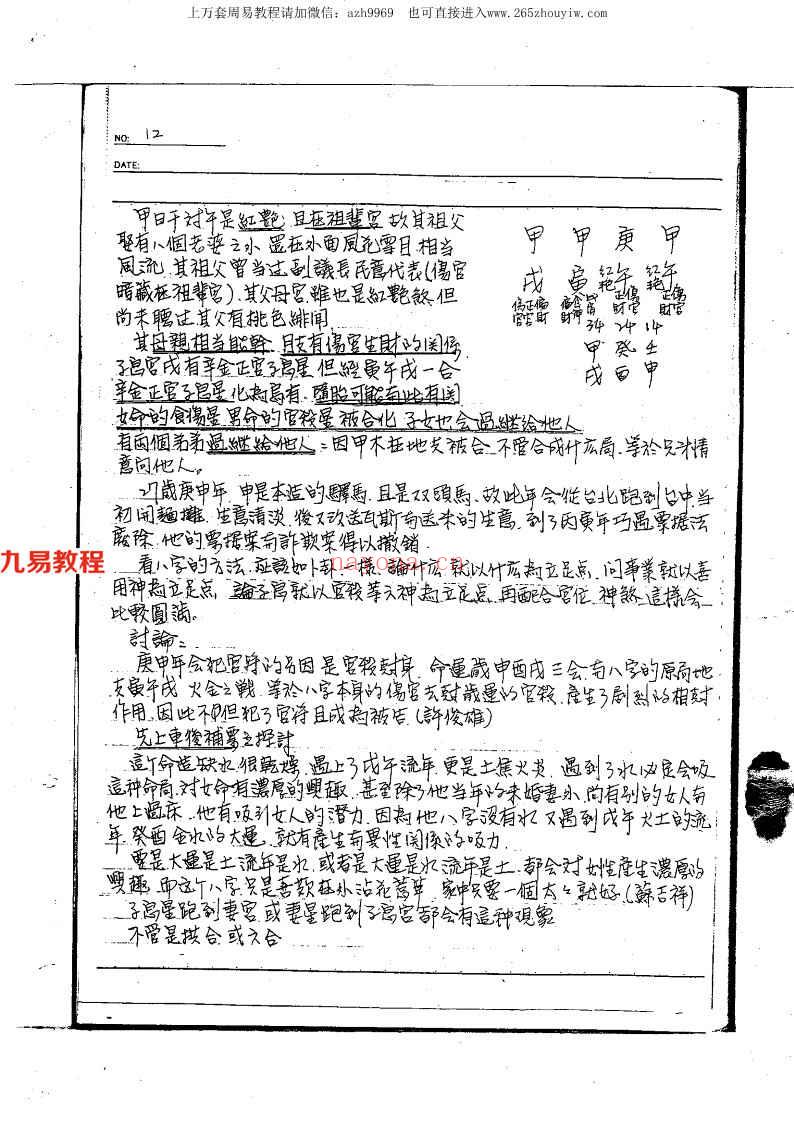 上万套周易教程请加微信：azh9969 也可直接进入www.265zhouyiw.com
NO: 12
DATE:
甲日干对午是紅艷 且在祖輩宮 故其祖父
娶有八個老婆之外 還在外面風花雪月 相当
風流 其祖父曾当过副議長民意代表(傷官
暗藏在祖輩宮) 其父母宮 雖也是紅艷煞 但
尚未聽过其父有桃色緋聞
其母親相当能幹 月支有傷官生財的関係
子息宮戌有辛金正官子息星 但經寅午戌一合
辛金正官子息星化為烏有 墮胎可能与此有関
女命的食傷星 男命的官殺星 被合化 子女也会過継給他人
有兩個弟弟過継給他人：因甲木在地支被合 不管合成什広局 等於兄弟情
意向他人。
27歲庚申年 申是本造的驛馬 且是双頭馬 故此年会從台北跑到台中 当
初開麵攤 生意清淡 後又改送瓦斯与送米的生意 到了丙寅年巧遇票据法
廢除 他的票据案与詐欺案得以撤銷
看八字的方法 应該如卜卦一樣 論什広 就以什広為立足点 问事業就以喜
用神為立足点 論子息就以官殺等六神為立足点 再配合宮位 神煞 這樣会
比較圓満。
討論：
庚申年会犯官符的名因 是官殺尅身 命運歲申酉戌三会 与八字的原局地
支寅午戌 火金之戰 等於八字本身的傷官去尅歲運的官殺 產生了劇烈的相尅
作用 因此不但犯了官符且成為被告 (許俊雄)
先上車後補票之探討
這个命造缺水 很乾燥 遇上了戊午流年 更是土焦火炎 遇到了水必定会吸
這种命局 对女命有濃厚的興趣 甚至除了他当年的未婚妻外 尚有別的女人与
他上過床 他有吸引女人的潛力 因為他八字没有水 又遇到戊午火土的流
年 癸酉金水的大運 就有產生与異性関係的吸力
要是大運是土流年是水 或者是大運是水流年是土 都会对女性產生濃厚的
興趣 而这个八字只是喜歡在外沾花惹草 家中只要一個太太就好 (蘇吉祥)
子息星跑到妻宮 或妻星跑到子息宮都会有這种現象
不管是拱合或六合
甲 甲 庚 甲
戌 寅 午 午
紅艷 紅艷
34 24 14
甲 癸 壬
戌 酉 申
九易教程